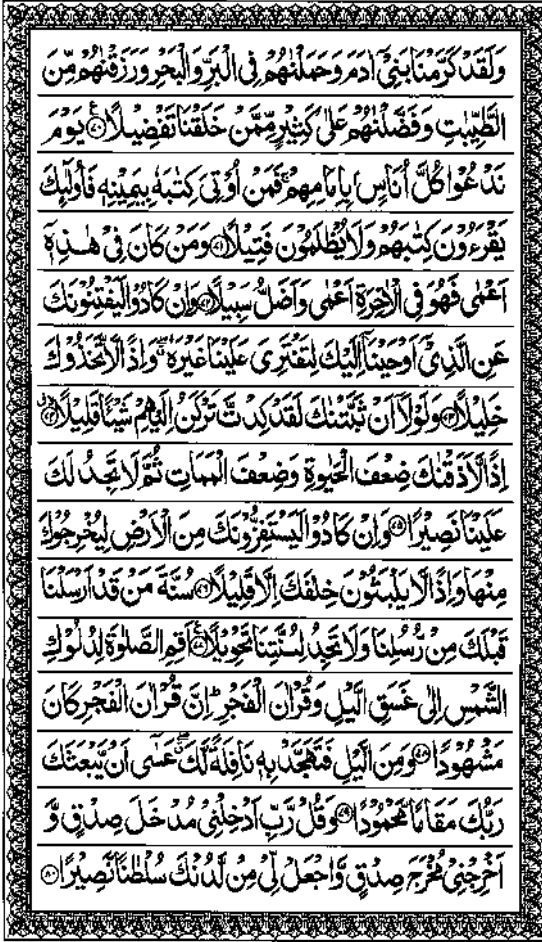 وَلَقَدْ كَرَّمْنَا بَنِيْٓ اٰدَمَ وَحَمَلْنٰهُمْ فِى الْبَرِّ وَالْبَحْرِ وَرَزَقْنٰهُمْ مِّنَ
الطَّيِّبٰتِ وَفَضَّلْنٰهُمْ عَلٰى كَثِيْرٍ مِّمَّنْ خَلَقْنَا تَفْضِيْلًا ۧ﴿۷۰﴾ يَوْمَ
نَدْعُوْا كُلَّ اُنَاسٍۭ بِاِمَامِهِمْ ۚ فَمَنْ اُوْتِىَ كِتٰبَهٗ بِيَمِيْنِهٖ فَاُولٰٓئِكَ
يَقْرَءُوْنَ كِتٰبَهُمْ وَلَا يُظْلَمُوْنَ فَتِيْلًا ﴿۷۱﴾ وَمَنْ كَانَ فِىْ هٰذِهٖٓ
اَعْمٰى فَهُوَ فِى الْاٰخِرَةِ اَعْمٰى وَاَضَلُّ سَبِيْلًا ﴿۷۲﴾ وَاِنْ كَادُوْا لَيَفْتِنُوْنَكَ
عَنِ الَّذِىْٓ اَوْحَيْنَآ اِلَيْكَ لِتَفْتَرِىَ عَلَيْنَا غَيْرَهٗ ۖ وَاِذًا لَّاتَّخَذُوْكَ
خَلِيْلًا ﴿۷۳﴾ وَلَوْلَآ اَنْ ثَبَّتْنٰكَ لَقَدْ كِدْتَّ تَرْكَنُ اِلَيْهِمْ شَيْـًٔا قَلِيْلًا ﴿۷۴﴾
اِذًا لَّاَذَقْنٰكَ ضِعْفَ الْحَيٰوةِ وَضِعْفَ الْمَمَاتِ ثُمَّ لَا تَجِدُ لَكَ
عَلَيْنَا نَصِيْرًا ﴿۷۵﴾ وَاِنْ كَادُوْا لَيَسْتَفِزُّوْنَكَ مِنَ الْاَرْضِ لِيُخْرِجُوْكَ
مِنْهَا وَاِذًا لَّا يَلْبَثُوْنَ خِلٰفَكَ اِلَّا قَلِيْلًا ﴿۷۶﴾ سُنَّةَ مَنْ قَدْ اَرْسَلْنَا
قَبْلَكَ مِنْ رُّسُلِنَا وَلَا تَجِدُ لِسُنَّتِنَا تَحْوِيْلًا ۧ﴿۷۷﴾ اَقِمِ الصَّلٰوةَ لِدُلُوْكِ
الشَّمْسِ اِلٰى غَسَقِ الَّيْلِ وَقُرْاٰنَ الْفَجْرِ ؕ اِنَّ قُرْاٰنَ الْفَجْرِ كَانَ
مَشْهُوْدًا ﴿۷۸﴾ وَمِنَ الَّيْلِ فَتَهَجَّدْ بِهٖ نَافِلَةً لَّكَ ۖ عَسٰٓى اَنْ يَّبْعَثَكَ
رَبُّكَ مَقَامًا مَّحْمُوْدًا ﴿۷۹﴾ وَقُلْ رَّبِّ اَدْخِلْنِىْ مُدْخَلَ صِدْقٍ وَّ
اَخْرِجْنِىْ مُخْرَجَ صِدْقٍ وَّاجْعَلْ لِّىْ مِنْ لَّدُنْكَ سُلْطٰنًا نَّصِيْرًا ﴿۸۰﴾